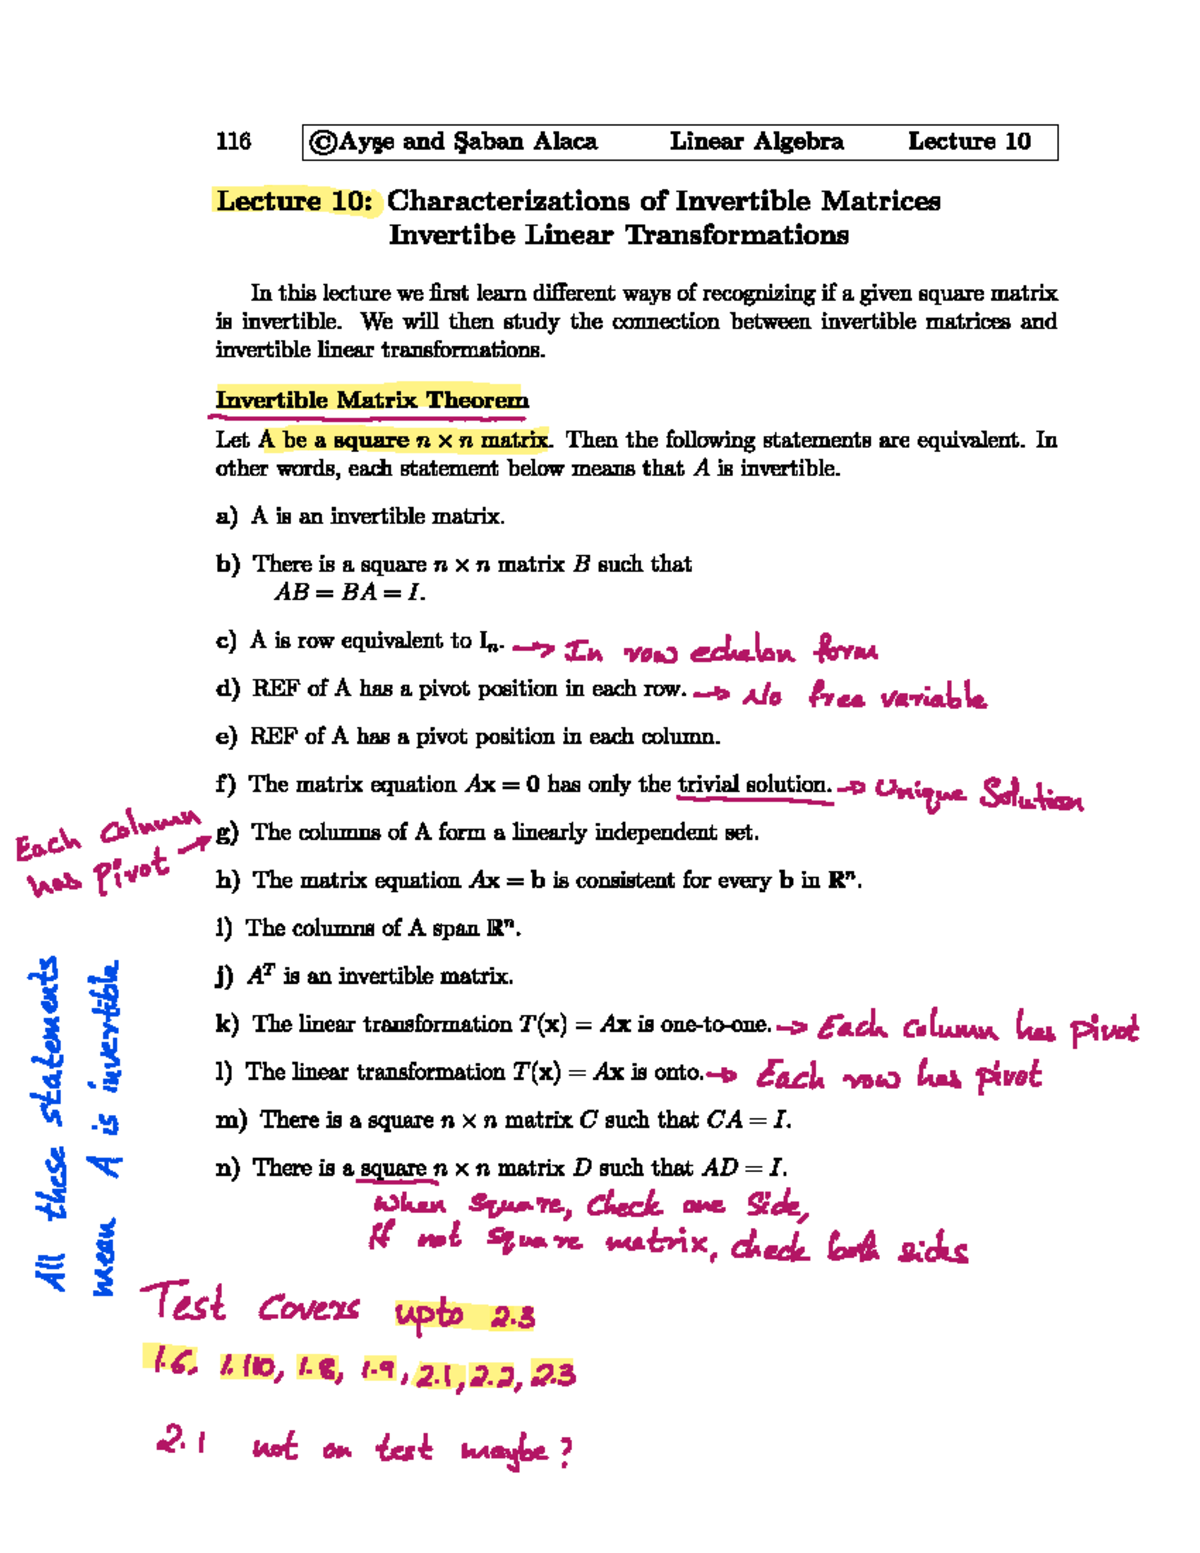 116 ©Ayşe and Şaban Alaca Linear Algebra Lecture 10
Lecture 10: Characterizations of Invertible Matrices
Invertibe Linear Transformations
In this lecture we first learn different ways of recognizing if a given square matrix
is invertible. We will then study the connection between invertible matrices and
invertible linear transformations.
Invertible Matrix Theorem
Let A be a square n × n matrix. Then the following statements are equivalent. In
other words, each statement below means that A is invertible.
a) A is an invertible matrix.
b) There is a square n × n matrix B such that
AB = BA = I.
c) A is row equivalent to Iₙ. → In row echelon form
d) REF of A has a pivot position in each row. → No free variable
e) REF of A has a pivot position in each column.
f) The matrix equation Ax = 0 has only the trivial solution. → Unique Solution
Each column
has pivot →
g) The columns of A form a linearly independent set.
h) The matrix equation Ax = b is consistent for every b in Rⁿ.
i) The columns of A span ℝⁿ.
j) Aᵀ is an invertible matrix.
k) The linear transformation T(x) = Ax is one-to-one. → Each column has pivot
l) The linear transformation T(x) = Ax is onto. → Each row has pivot
m) There is a square n × n matrix C such that CA = I.
n) There is a square n × n matrix D such that AD = I.
When Square, Check one Side,
If not square matrix, check both sides
All these statements
mean A is invertible
Test Covers upto 2.3
1.8, 1.9, 2.1, 2.2, 2.3
2.1 not on test maybe?